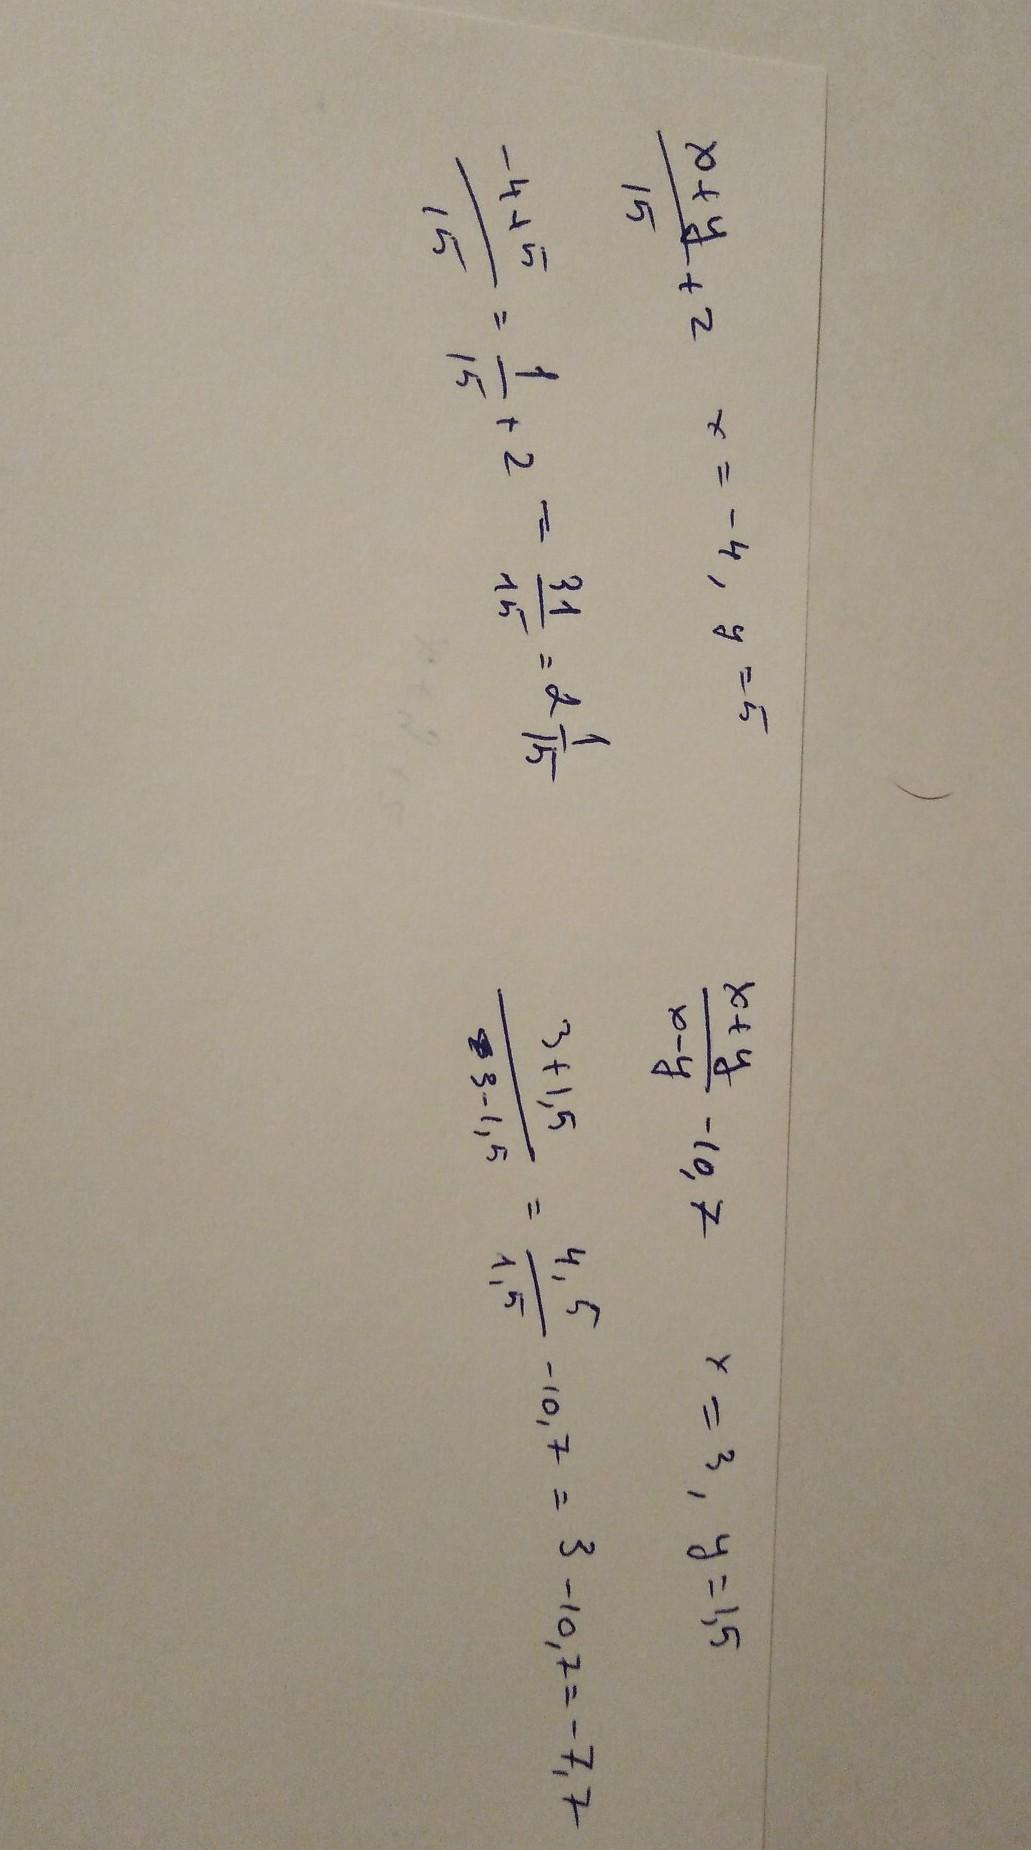 x+y/15 + 2 x = -4, y = 5
-4+5/15 = 1/15 + 2 = 31/15 = 2 1/15
x+y/x-y - 10,7 x = 3, y = 1,5
3+1,5/3-1,5 = 4,5/1,5 - 10,7 = 3 - 10,7 = -7,7